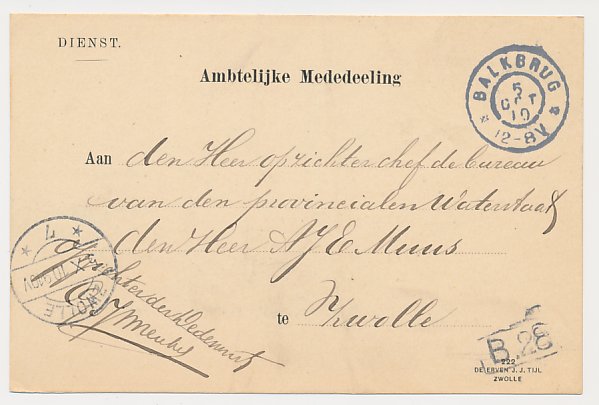 DIENST.
Ambtelijke Mededeeling
BALKBRUG
5
OCT
10
12-8V
Aan den Heer opzichter chef de bureau
van den provincialen Waterstaat
den Heer A J E Muus
te Zwolle
ZWOLLE
7
B.28
222
DE ERVEN J. J. TIJL
ZWOLLE